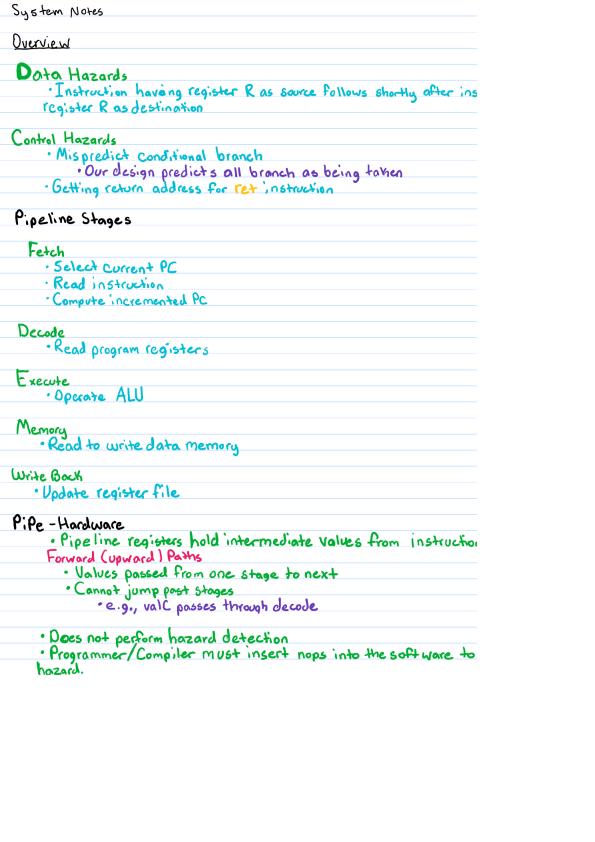 System Notes
Overview
Data Hazards
• Instruction having register R as source follows shortly after ins
register R as destination
Control Hazards
• Mispredict conditional branch
• Our design predicts all branch as being taken
• Getting return address for ret instruction
Pipeline Stages
Fetch
• Select current PC
• Read instruction
• Compute incremented PC
Decode
• Read program registers
Execute
• Operate ALU
Memory
• Read to write data memory
Write Back
• Update register file
PiPe - Hardware
• Pipeline registers hold intermediate values from instructio
Forward (upward) Paths
• Values passed from one stage to next
• Cannot jump past stages
• e.g., valC passes through decode
• Does not perform hazard detection
• Programmer/Compiler must insert nops into the software to
hazard.